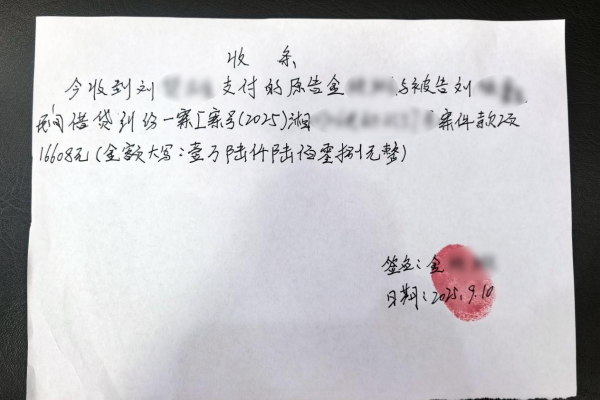 收条
今收到刘 支付的原告金 与被告刘
民间借贷纠纷一案[案号(2025)湘 案件款项
16608元(金额大写:壹万陆仟陆佰零捌元整)
签名:金
日期:2025.9.10